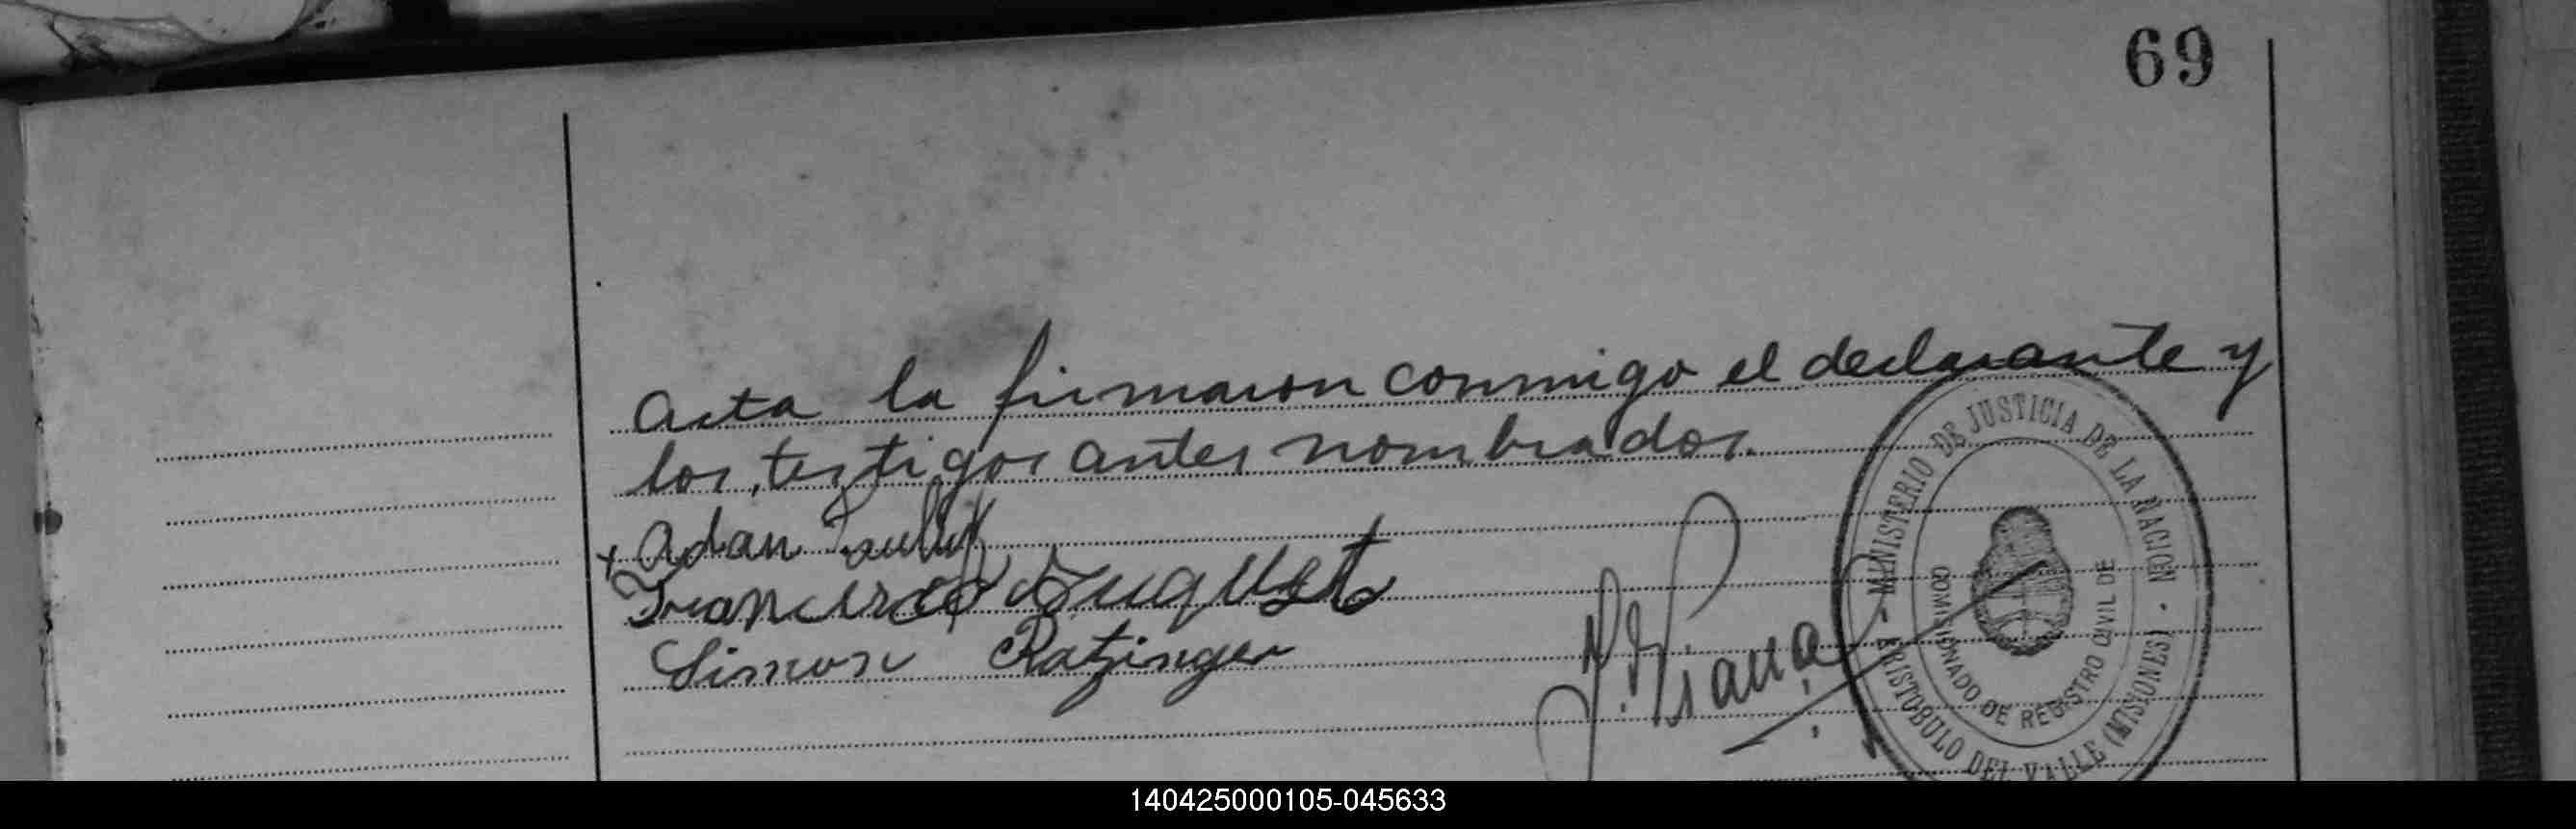 69
acta la firmaron conmigo el declarante y
los testigos antes nombrados.
Adan
Francisco Duguet
Simon Ratzinger
MINISTERIO DE JUSTICIA DE LA NACION
ARISTOBULO DEL VALLE (MISIONES)
COMISIONADO DE REGISTRO CIVIL DE
140425000105-045633